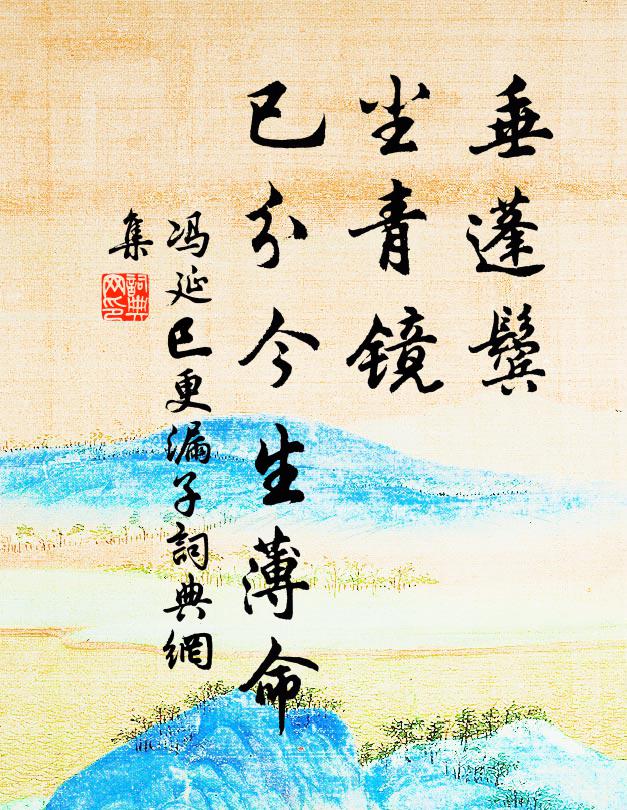 垂蓬鬓
尘青镜
已分今生薄命
冯延巳更漏子詞典網
集
詞典
网印